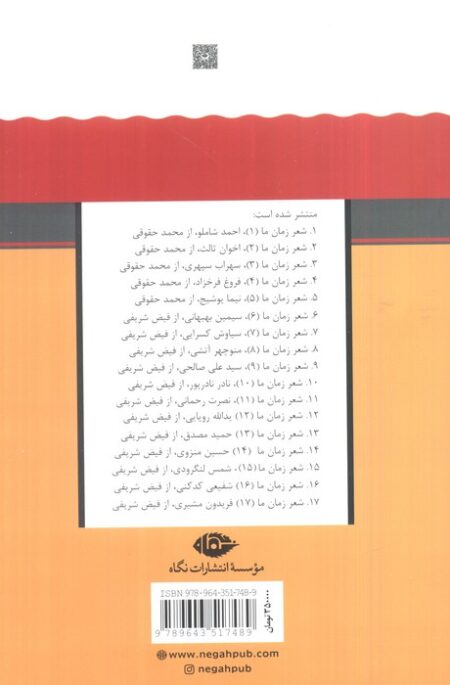 منتشر شده است:
۱. شعر زمان ما (۱)، احمد شاملو، از محمد حقوقی
۲. شعر زمان ما (۲)، اخوان ثالث، از محمد حقوقی
۳. شعر زمان ما (۳)، سهراب سپهری، از محمد حقوقی
۴. شعر زمان ما (۴)، فروغ فرخزاد، از محمد حقوقی
۵. شعر زمان ما (۵)، نیما یوشیج، از محمد حقوقی
۶. شعر زمان ما (۶)، سیمین بهبهانی، از فیض شریفی
۷. شعر زمان ما (۷)، سیاوش کسرایی، از فیض شریفی
۸. شعر زمان ما (۸)، منوچهر آتشی، از فیض شریفی
۹. شعر زمان ما (۹)، سید علی صالحی، از فیض شریفی
۱۰. شعر زمان ما (۱۰)، نادر نادرپور، از فیض شریفی
۱۱. شعر زمان ما (۱۱)، نصرت رحمانی، از فیض شریفی
۱۲. شعر زمان ما (۱۲) یدالله رویایی، از فیض شریفی
۱۳. شعر زمان ما (۱۳) حمید مصدق، از فیض شریفی
۱۴. شعر زمان ما (۱۴) حسین منزوی، از فیض شریفی
۱۵. شعر زمان ما(۱۵)، شمس لنگرودی، از فیض شریفی
۱۶. شعر زمان ما (۱۶) شفیعی کدکنی، از فیض شریفی
۱۷. شعر زمان ما (۱۷) فریدون مشیری، از فیض شریفی
نگاه
مؤسسهٔ انتشارات نگاه
ISBN 978-964-351-748-9
9 789643 517489
۳۵۰۰۰۰ تومان
www.negahpub.com
negahpub